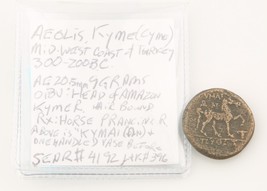 AEOLIS, KYME (CYME)
MID-WEST COAST of TURKEY
300-200BC
AE205mm 9GRAMS
OBV: HEAD of AMAZON
KYME R HAIR BOUND
RX: HORSE PRANCING R
ABOVE is "KYMAI(AN)" +
ONE HANDLED VASE BELOW
SEAR# 4192